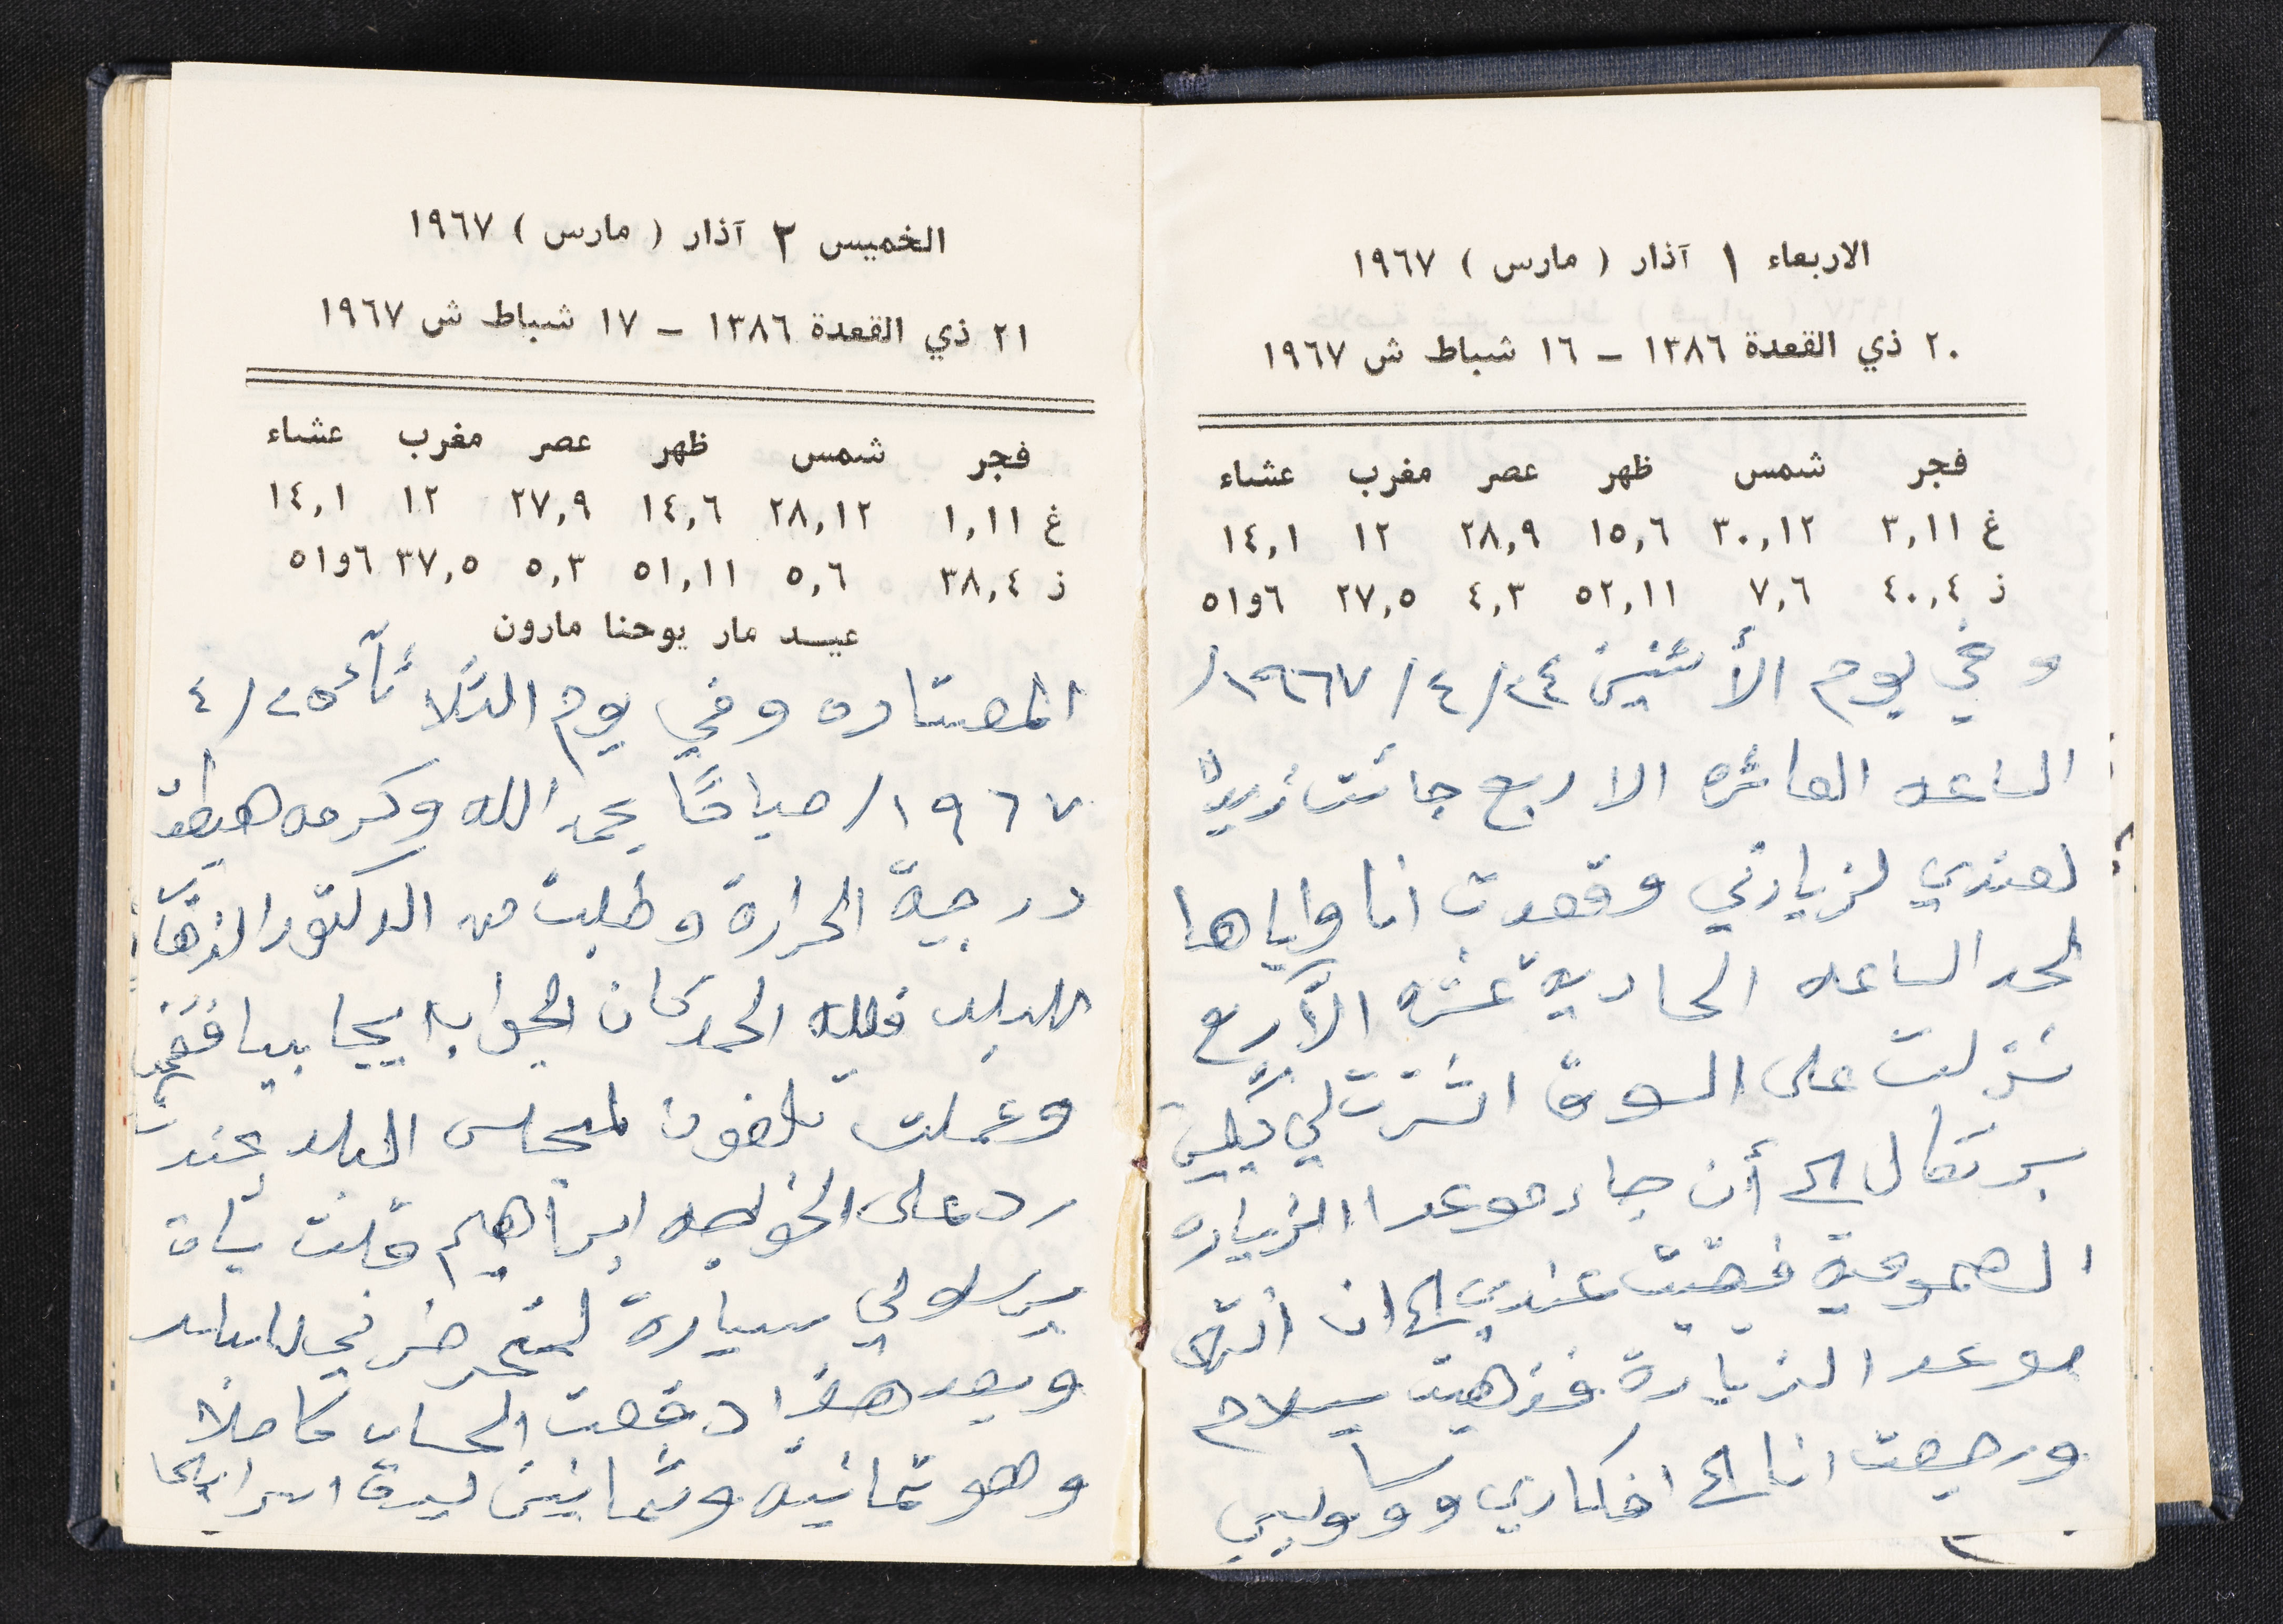 الاربعاء ١ آذار ( مارس ) ١٩٦٧
٢٠ ذي القعدة ١٣٨٦ – ١٦ شباط ش ١٩٦٧
فجر شمس ظهر عصر مغرب عشاء
غ ٣,١١ ٣٠,١٢ ١٥,٦ ٢٨,٩ ١٢ ١٤,١
ز ٤٠,٤ ٧,٦ ٥٢,١١ ٤,٣ ٢٧,٥ ٦و٥١
و في يوم الأثنين ٢٤/٤/١٩٦٧/
الساعه العاشره الا ربع جائت
لعندي لزيارتي وقعدت انا واياها
لحد الساعه الحاديه عشره الأربع
نزلت على السوق اشترت لي
برتقال الى أن جاء موعد الزياره
العموميه عندي الى ان انتهى
موعد الزيارة فذهبت بسلام
ورجعت انا الى افكاري ووساوسي
الخميس ٢ آذار ( مارس ) ١٩٦٧
٢١ ذي القعدة ١٣٨٦ – ١٧ شباط ش ١٩٦٧
فجر شمس ظهر عصر مغرب عشاء
غ ١,١١ ٢٨,١٢ ١٤,٦ ٢٧,٩ ١٢ ١٤,١
ز ٣٨,٤ ٥,٦ ٥١,١١ ٥,٣ ٣٧,٥ ٦و٥١
عيد مار يوحنا مارون
المعتاده وفي يوم الثلاثاء ٢٥/٤
١٩٦٧/ صباحًا بحمد الله وكرمه هبطت
درجة الحرارة وطلبت من الدكتور الذهاب
للبلد فلله الحمد كان الجواب ايجابيا
وعملت تلفون لمجلس البلد عندنا
رد على الخواجه ابراهيم قلت بأن
يرسلو لي سيارة للبلد
وبعد هذا دفعت الحساب كاملا
وهو ثمانيه وثمانين ليرة